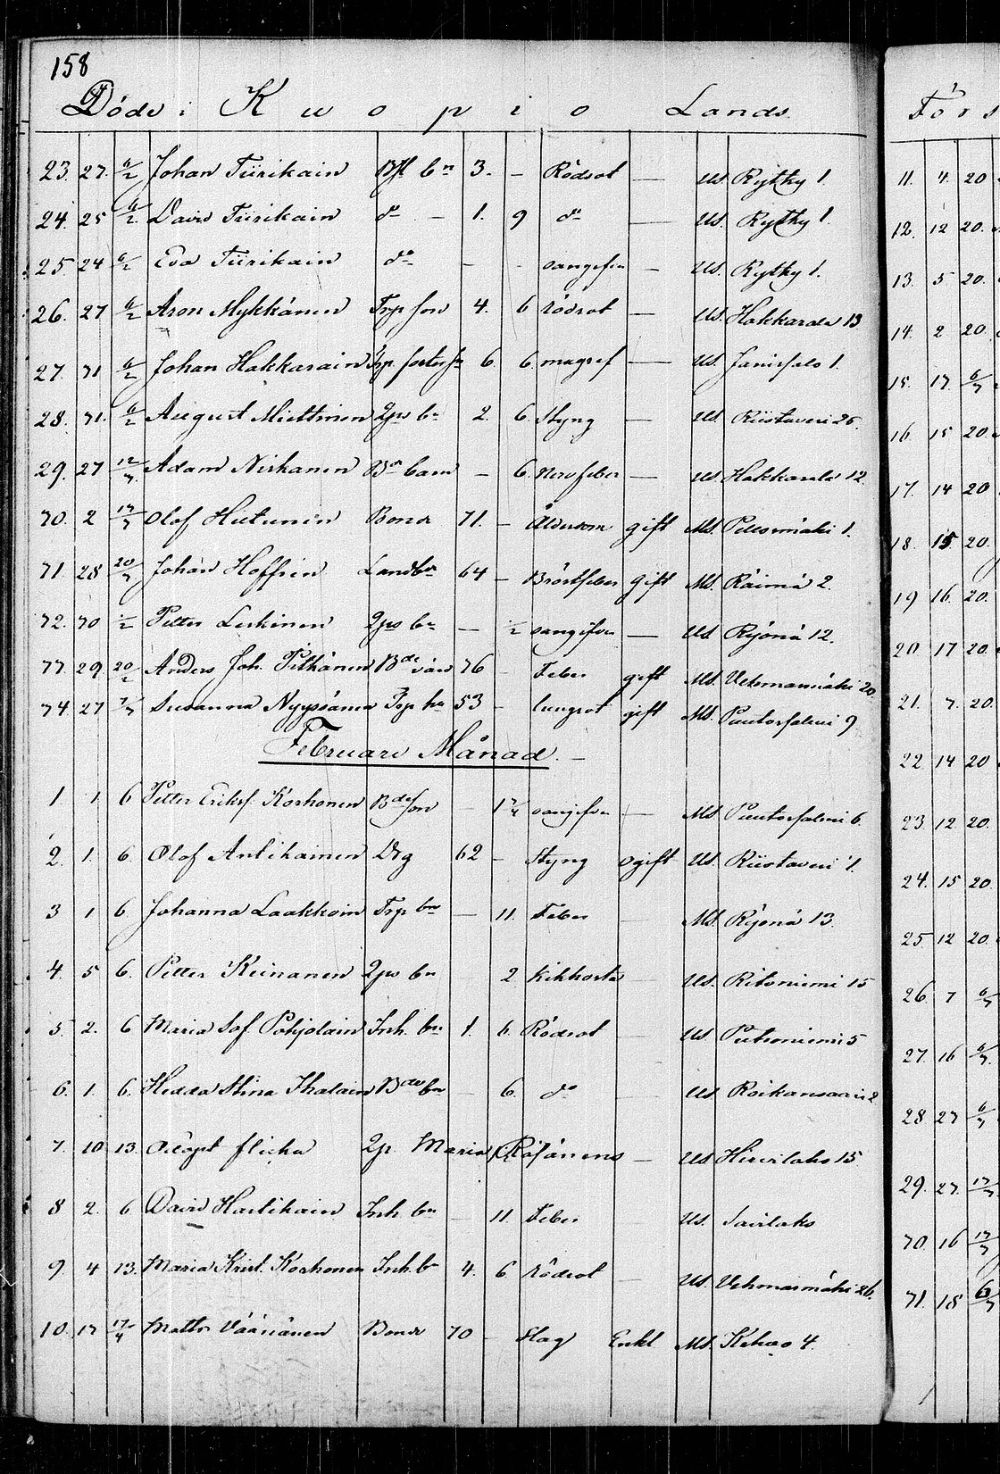 158
Döde i Kuopio Lands
23. 27. 6/2 Johan Tiirikain Bfl bn 3. - Rödsot - Us. Rytky 1.
24. 25 6/2 David Tiirikain do - 1. 9 do - Us. Rytky 1.
25 24 6/2 Eva Tiirikain do - - - Us. Rytky 1.
26. 27 6/2 Aron Mykkänen Trp son 4. 6 rödsot - Us. Hakkarala 13
27. 71 6/2 Johan Hakkarain Trp 6 6 magref - Us. Jänissalo 1.
28. 71. 6/2 August Miettinen bn 2. 6. Styng - Us. Riistaveri 25.
29. 27 12/7 Adam Niskanen Bn barn - 6. Nervfeber - Us. Hakkarala 12.
70. 2 17/7 Olof Hutunen Bonde 71. - Ålderdom gift Ms. 1.
71. 28 20/7 Johan Hoffren Landbn 64 - Bröstfeber gift Ms. Räimä 2.
72. 70 Petter Leskinen bn - 1/2 - Us. Ryönä 12.
77. 29 20/2 Anders Joh. Pitkänen Bde 76 Feber gift Ms. Vehmasmäki 20.
74. 27 Susanna Nyyssänen Trp hu 53 - lungsot gift Ms. Puutosalmi 9
Februari Månad. -
1 1. 6 Petter Eriksf Korhonen Bdeson - - Ms. Puutosalmi 6.
2. 1. 6. Olof Antikainen Drg 62 - Styng ogift Us. Riistaveri 1.
3 1 6. Johanna Laakkoin Trp bn - 11. Feber Ms. Ryönä 13.
4. 5 6. Petter Keinanen bn 2 kikhosta Us. Ritoniemi 15
5 2. 6 Maria Sof. Pohjolain Inh. bn 1. 6. Rödsot Us. 5
6. 1. 6. Hedda Stina Ihalain Bde bn 6. do Us. Roikansaari 2
7. 10 13. flicka Maria Räsänens - Us. Hirvilaks 15
8 2. 6 David Hartikain Inh. bn - 11. Feber Us. Savilaks
9. 4 13. Maria Krist. Korhonen Inh. bn 4. 6 rödsot - Us. Vehmasmäki 26.
10. 17 17/4 Matts Väänänen Bonde 70 - Slag Enkl Ms. Kehvo 4.
Förs
11. 4. 20
12. 12 20.
13. 5 20.
14. 2 20.
15. 17. 6/7
16. 15 20
17. 14 20
18. 15 20.
19 16. 20.
20. 17 20.
21. 7. 20.
22 14 20
23. 12 20.
24. 15 20.
25 12 20.
26 7 6/7
27. 16 6/7
28 27 6/7
29. 27. 17/7
70. 16 17/7
71. 18 6/7